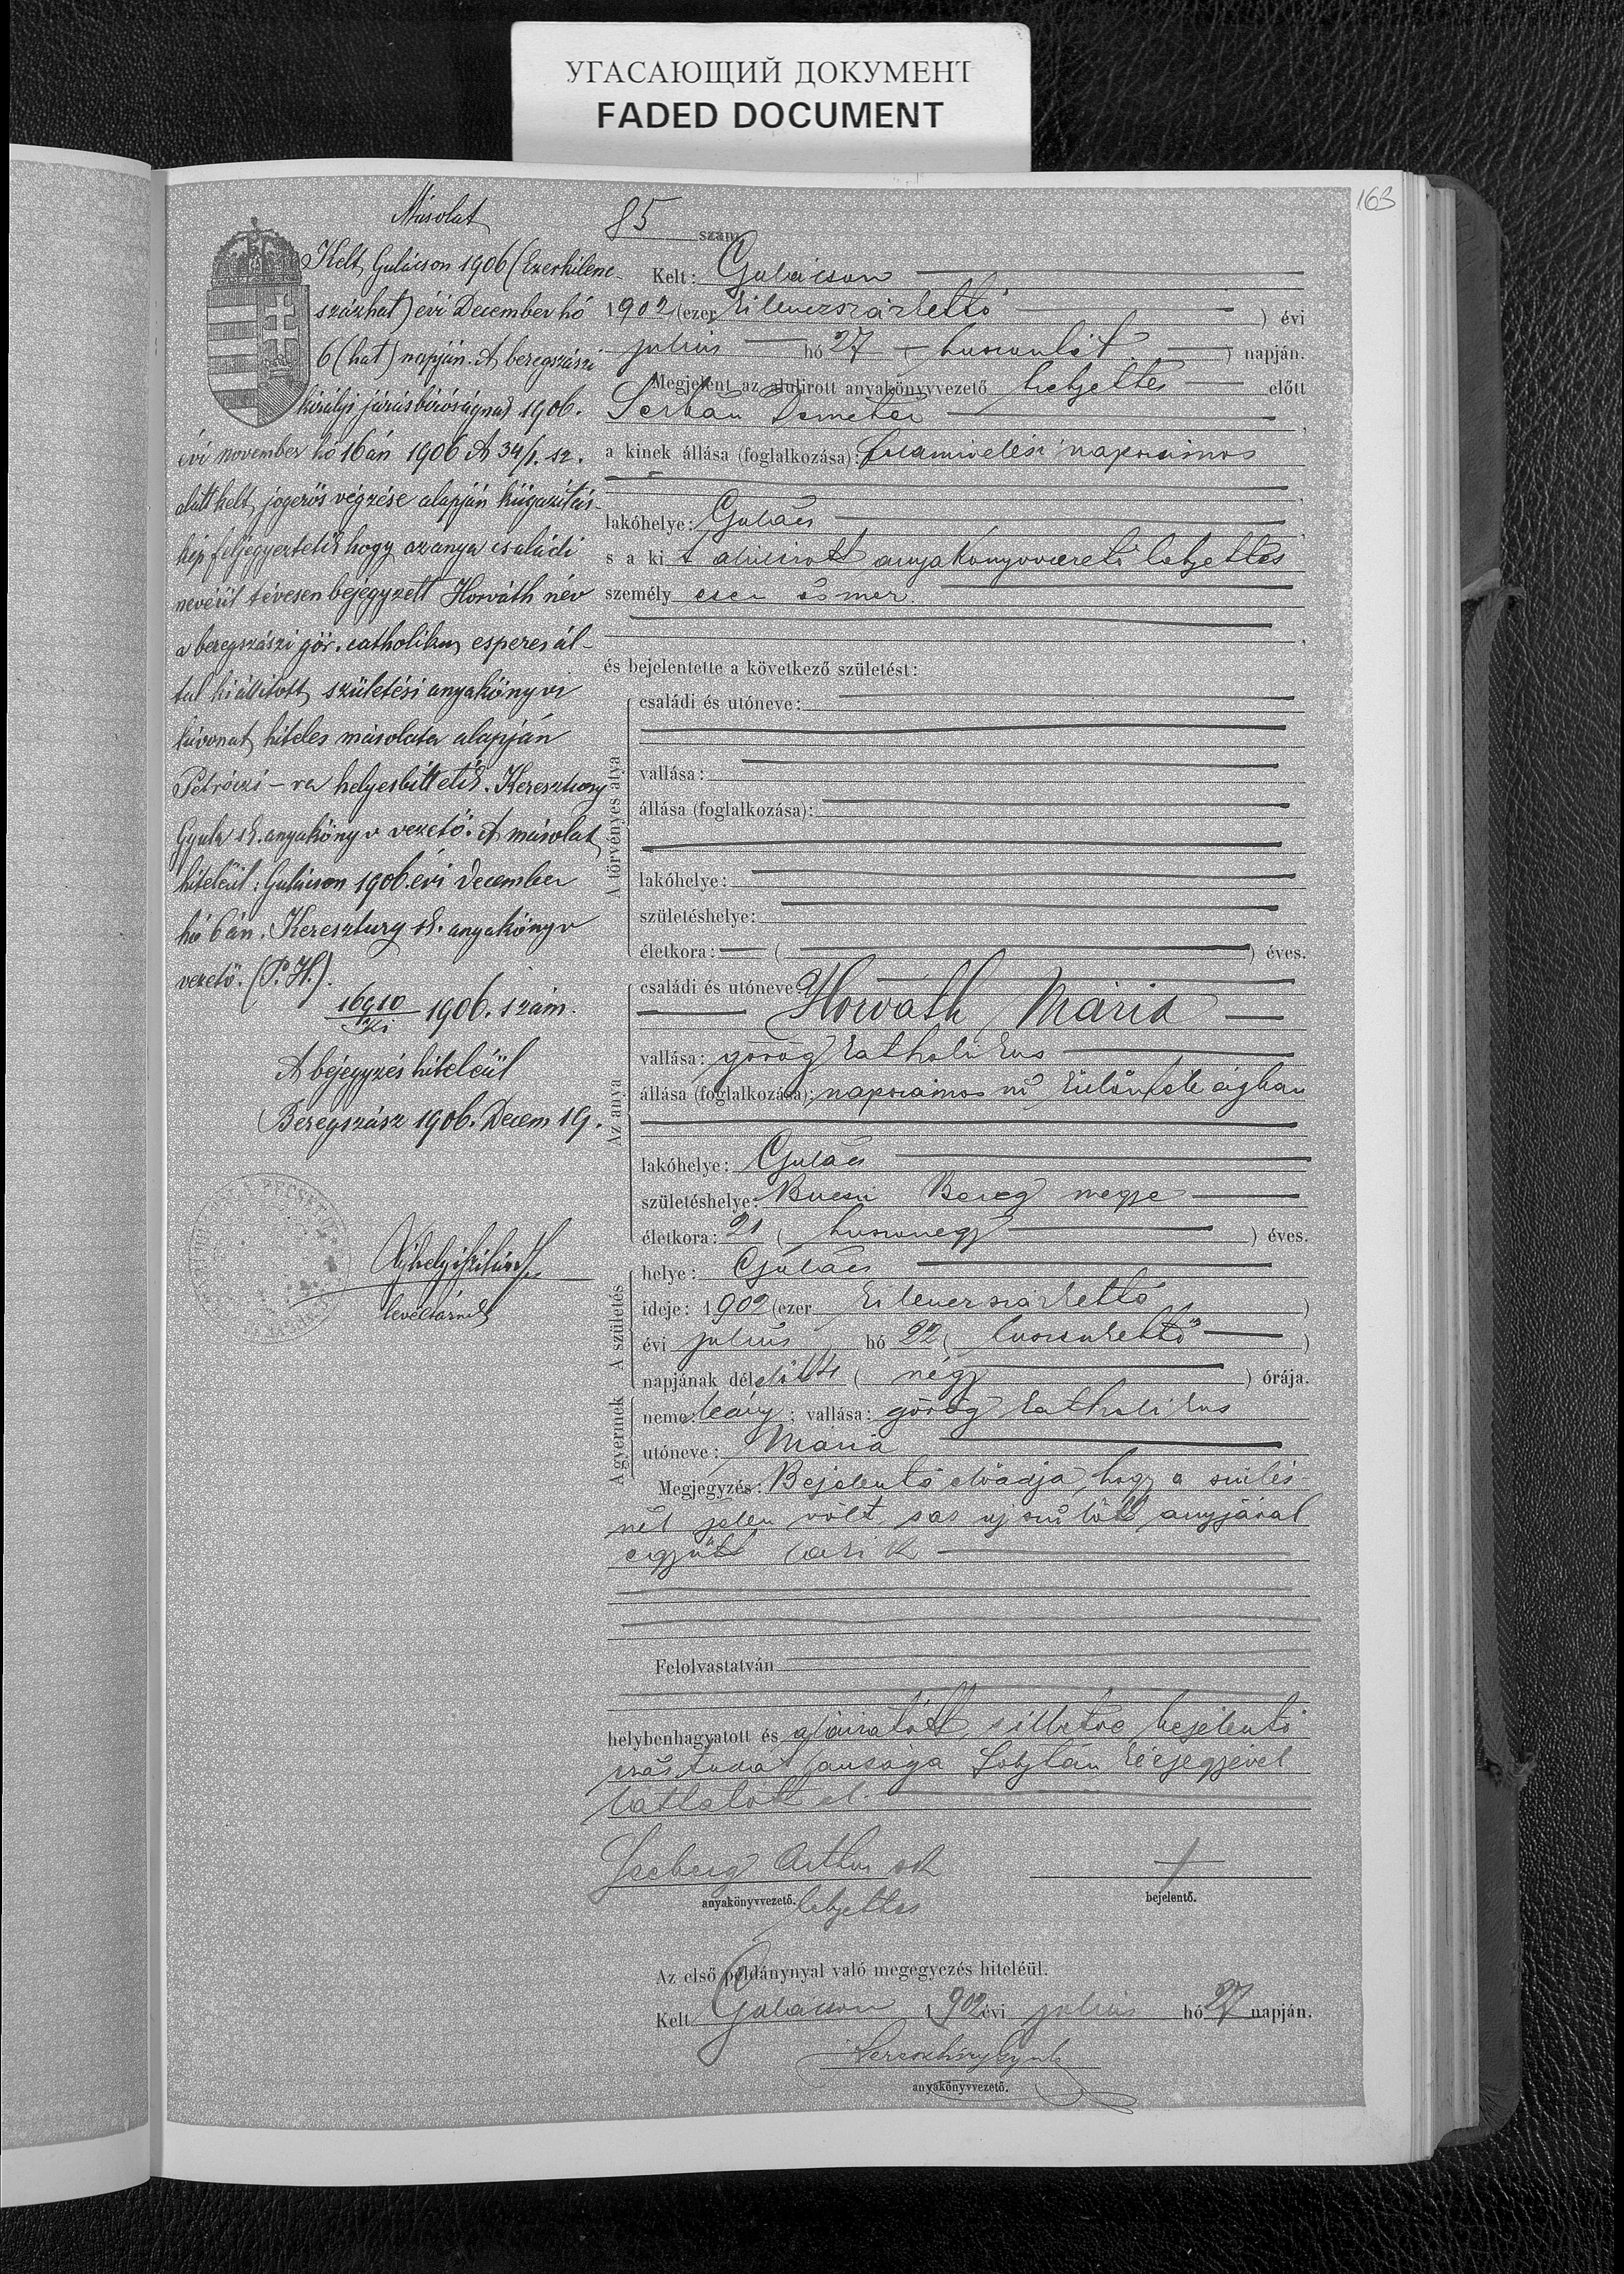 УГАСАЮЩИЙ ДОКУМЕНТ
FADED DOCUMENT
163
Másolat
Kelt, Gulácson 1906 (Ezerkilenc-
százhat) évi December hó
6 (hat) napján. A beregszászi
királyi járásbíróságnak 1906.
évi november hó 16 án 1906 A 34/1. sz.
alatt kelt jogerős végzése alapján kiigazítás-
kép feljegyeztetik hogy az anya családi
nevéül tévesen bejegyzett Horváth név
a beregszászi gör. catholikus esperes ál-
tal kiállított születési anyakönyvi
kivonat hiteles másolata alapján
Petróczi-ra helyesbittetik. Keresztury
Gyula sk. anyakönyv vezető. A másolat
hiteléül: Gulácson 1906. évi December
hó 6 án. Keresztury sk. anyakönyv
vezető. (P. H.).
1906. szám.
A bejegyzés hiteléül
Beregszász 1906. Decem 19.
levéltárnok
85 szám
Kelt: Gulácson
1902 (ezer kilenczszázkettő ) évi
julius hó 27 ( huszonhét ) napján.
Megjelent az alulirott anyakönyvvezető helyettes előtt
Serbán Demeter ,
a kinek állása (foglalkozása): földmivelési napszámos
lakóhelye: Gulács ,
s a ki t alulirott anyakönyvvezető helyettes
személy esen ösmer. ,
és bejelentette a következő születést:
A törvényes atya
családi és utóneve:
vallása:
állása (foglalkozása):
lakóhelye:
születéshelye:
életkora: ( ) éves.
Az anya
családi és utóneve:
Horváth Mária
vallása: görög katholikus
állása (foglalkozása): napszámos nő
lakóhelye: Gulács
születéshelye: Bucsu Bereg megye
életkora: 21 ( huszonegy ) éves.
A születés
helye: Gulács
ideje: 1902 (ezer kilenczszázkettő )
évi julius hó 22 ( huszonkettő )
napjának dél előtti ( négy ) órája.
A gyermek
neme: leány; vallása: görög katholikus
utóneve: Mária
Megjegyzés: Bejelentő előadja, hogy a szülés-
nél jelen volt, s az ujszülött anyjával
együtt lakik
Felolvastatván
helybenhagyatott és aláiratott, illetve bejelentő
irástudatlansága folytán kézjegyével
láttatott el.
Arthur sk
anyakönyvvezető. helyettes
+
bejelentő.
Az első példánynyal való megegyezés hiteléül.
Kelt Gulácson 1902 évi julius hó 27 napján.
Keresztury Gyula
anyakönyvvezető.